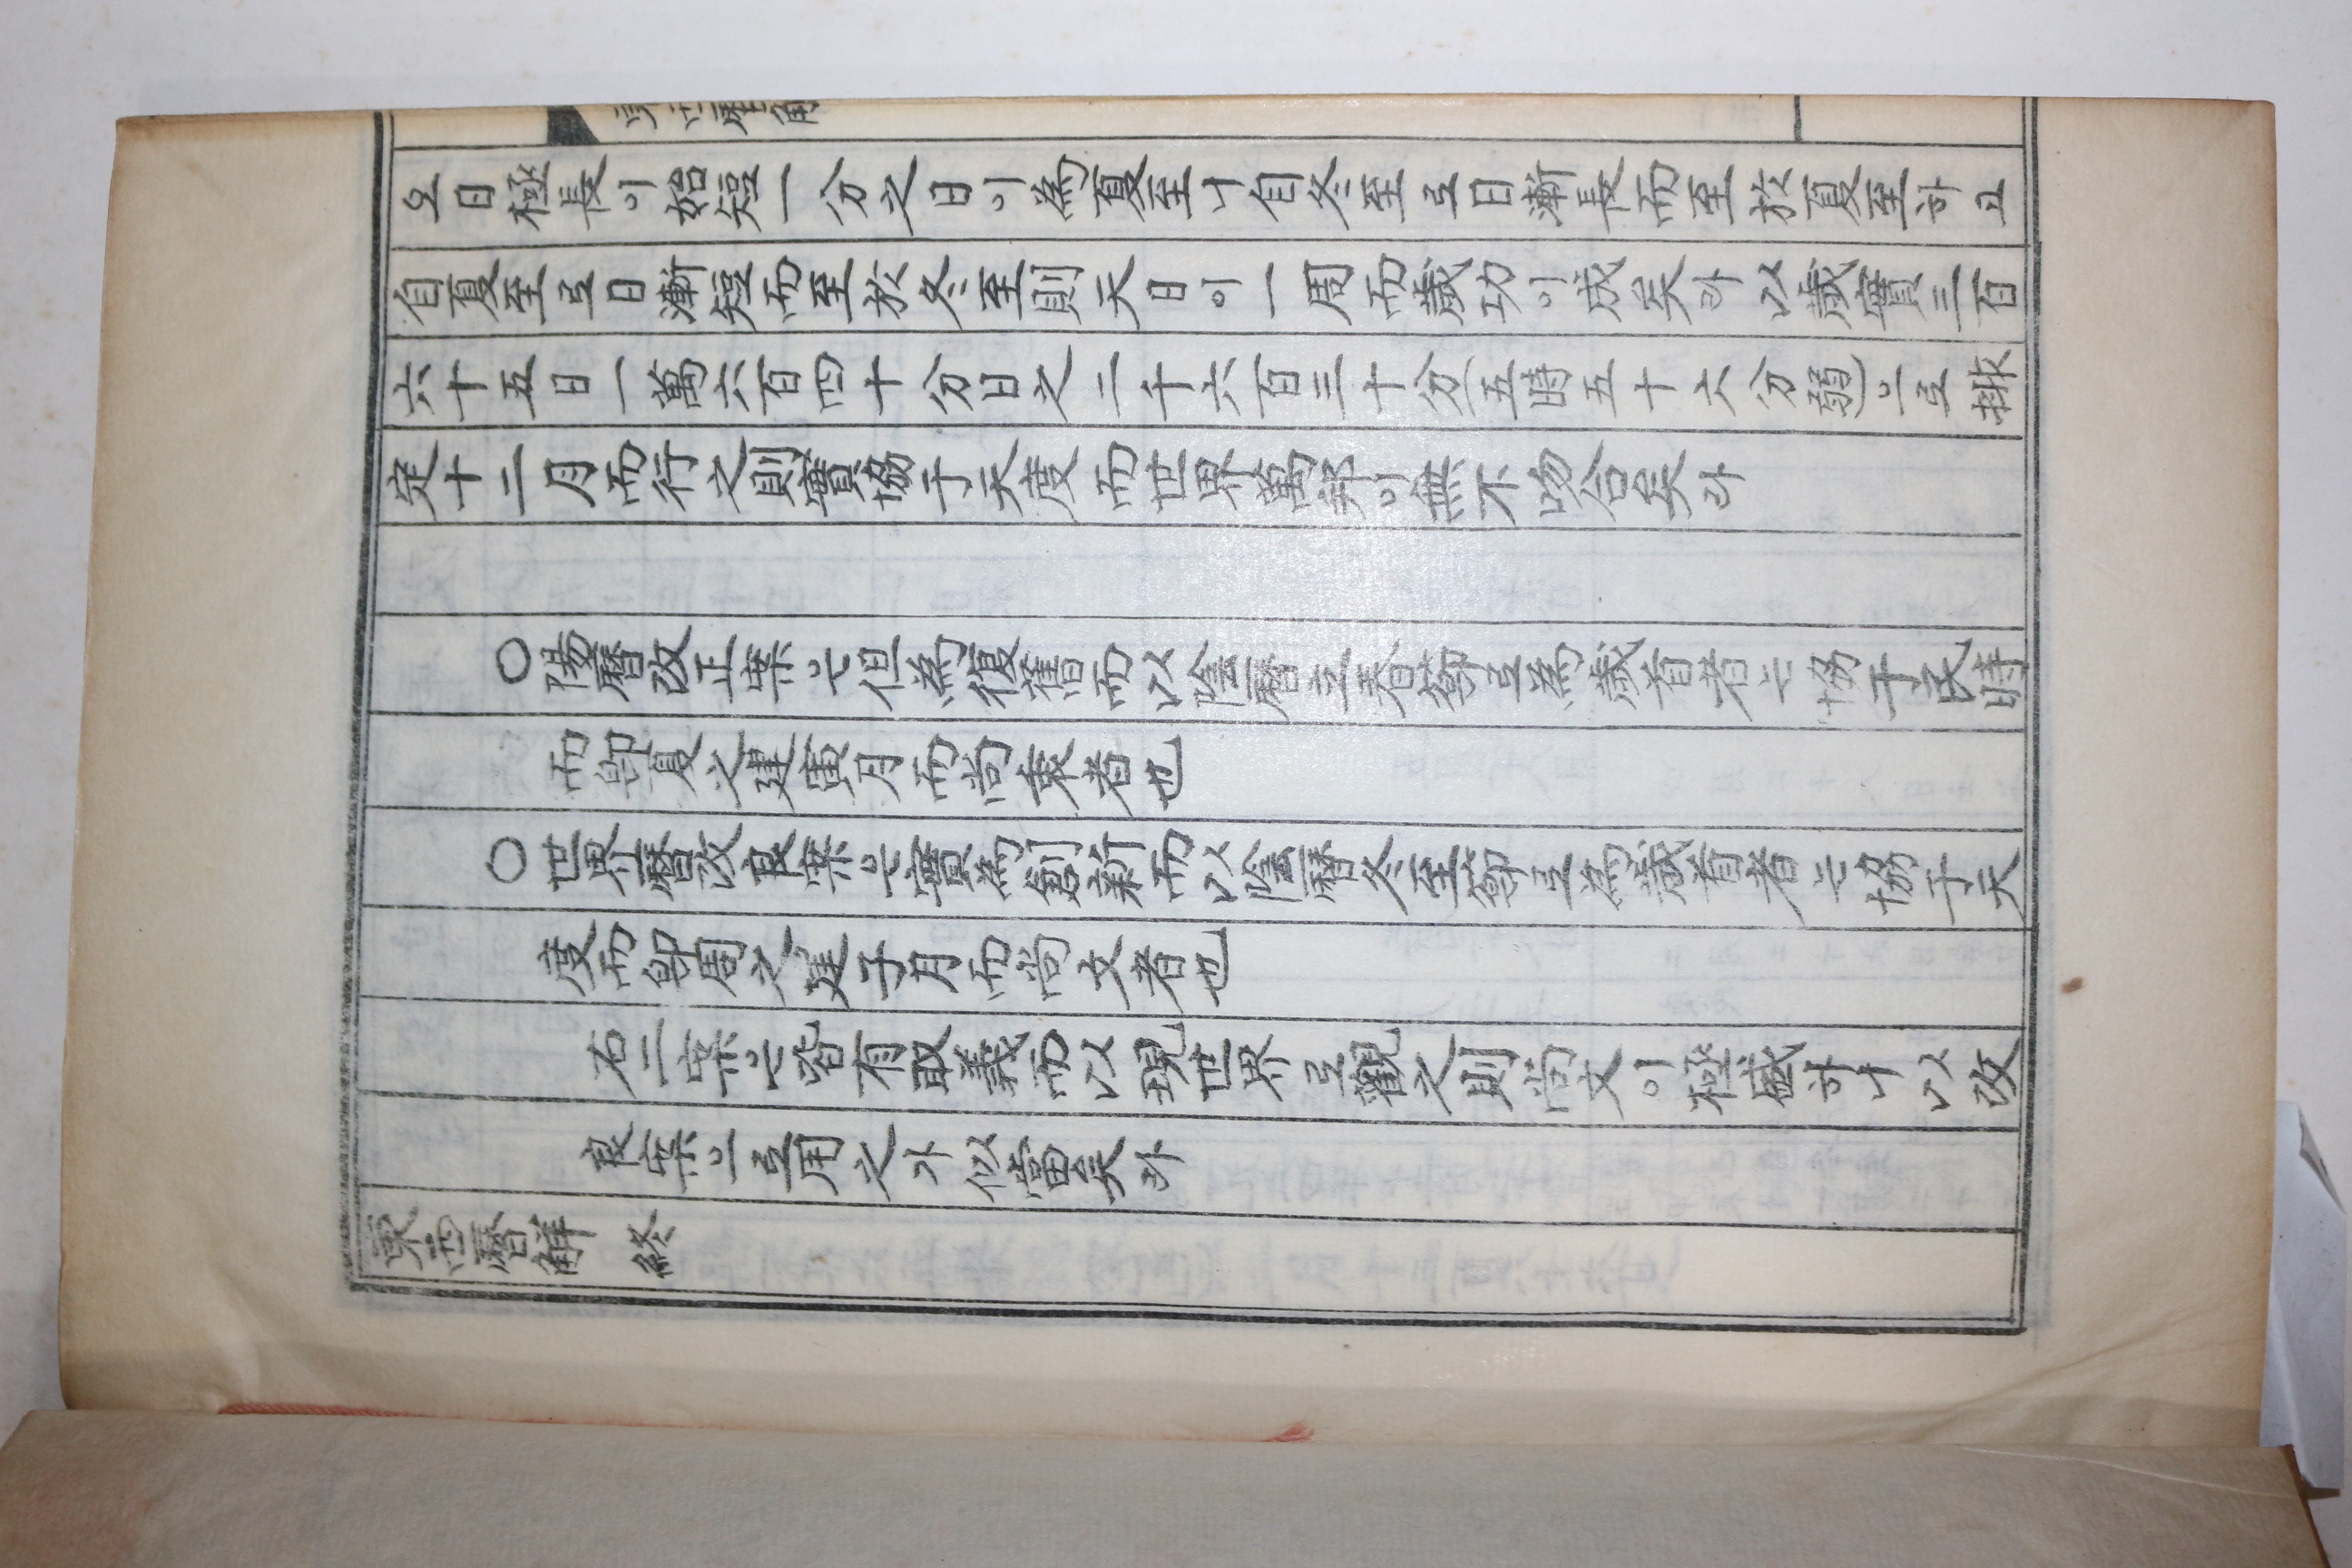 東西曆解
오日極長이始短一分之日이為夏至니自冬至로日漸長而至於夏至하고
自夏至로日漸短而至於冬至則天日이一周而歲功이成矣라以歲實三百
六十五日一萬六百四十分日之二千六百三十分(五時五十六分弱)으로排
定十二月而行之則實協于天度而世界萬邦이無不吻合矣라
○陽曆改正案은但為復舊而以陰曆立春節로為歲首者는協于民時
而卽夏之建寅月而尚衷者也
○世界曆改良案은實為創新而以陰曆冬至節로為歲首者는協于天
度而卽周之建子月而尚文者也
右二案은皆有取義而以現世界로觀之則尚文이極盛하니以改
良案으로用之가似當矣라
東西曆解 終